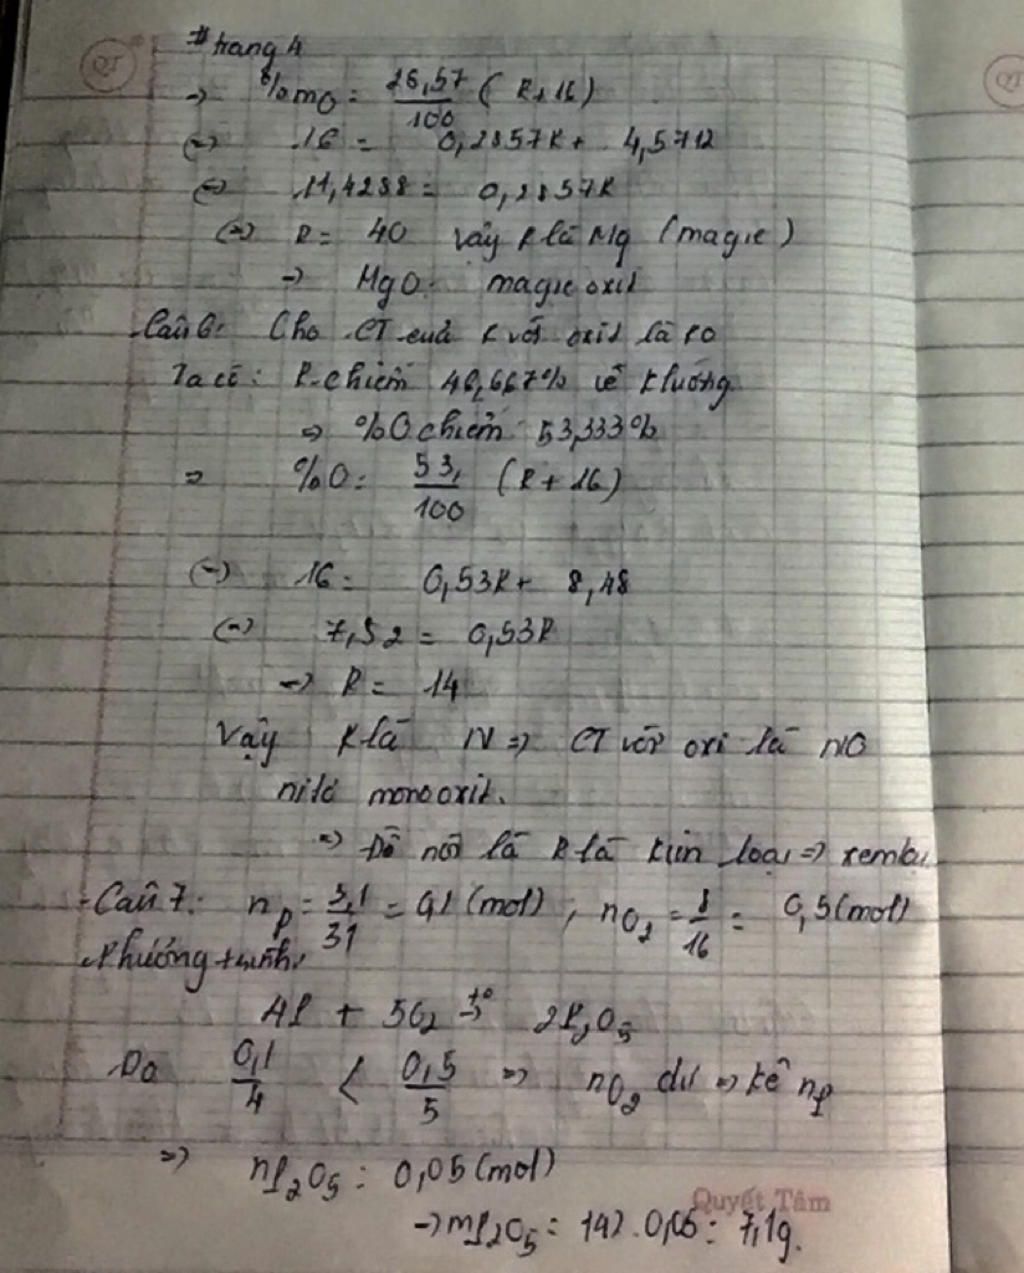 # trang 4
=> %mO = 28,57/100 (R+16)
(=) 16 = 0,2857R + 4,5712
(=) 11,4288 = 0,2857R
(=) R = 40 vậy R là Mg (magie)
=> MgO: magie oxit
- Câu 6: Cho CT của R với oxit là RO
Ta có: R chiếm 46,667% về klượng
=> %O chiếm 53,333%
=> %O = 53,/100 (R+16)
(=) 16 = 0,53R + 8,48
(=) 7,52 = 0,53R
=> R = 14
Vậy R là N => CT với oxi là NO
nitơ monooxit.
=> Đề nói là R là kim loại => xem lại
- Câu 7: nP = 3,1/31 = 0,1 (mol) ; nO2 = 8/16 = 0,5 (mol)
Phương trình:
4P + 5O2 t° → 2P2O5
Do 0,1/4 < 0,5/5 => nO2 dư => kê nP
=> nP2O5 = 0,05 (mol)
Quyết Tâm
=> mP2O5 = 142.0,05 = 7,1g.
QT
QT